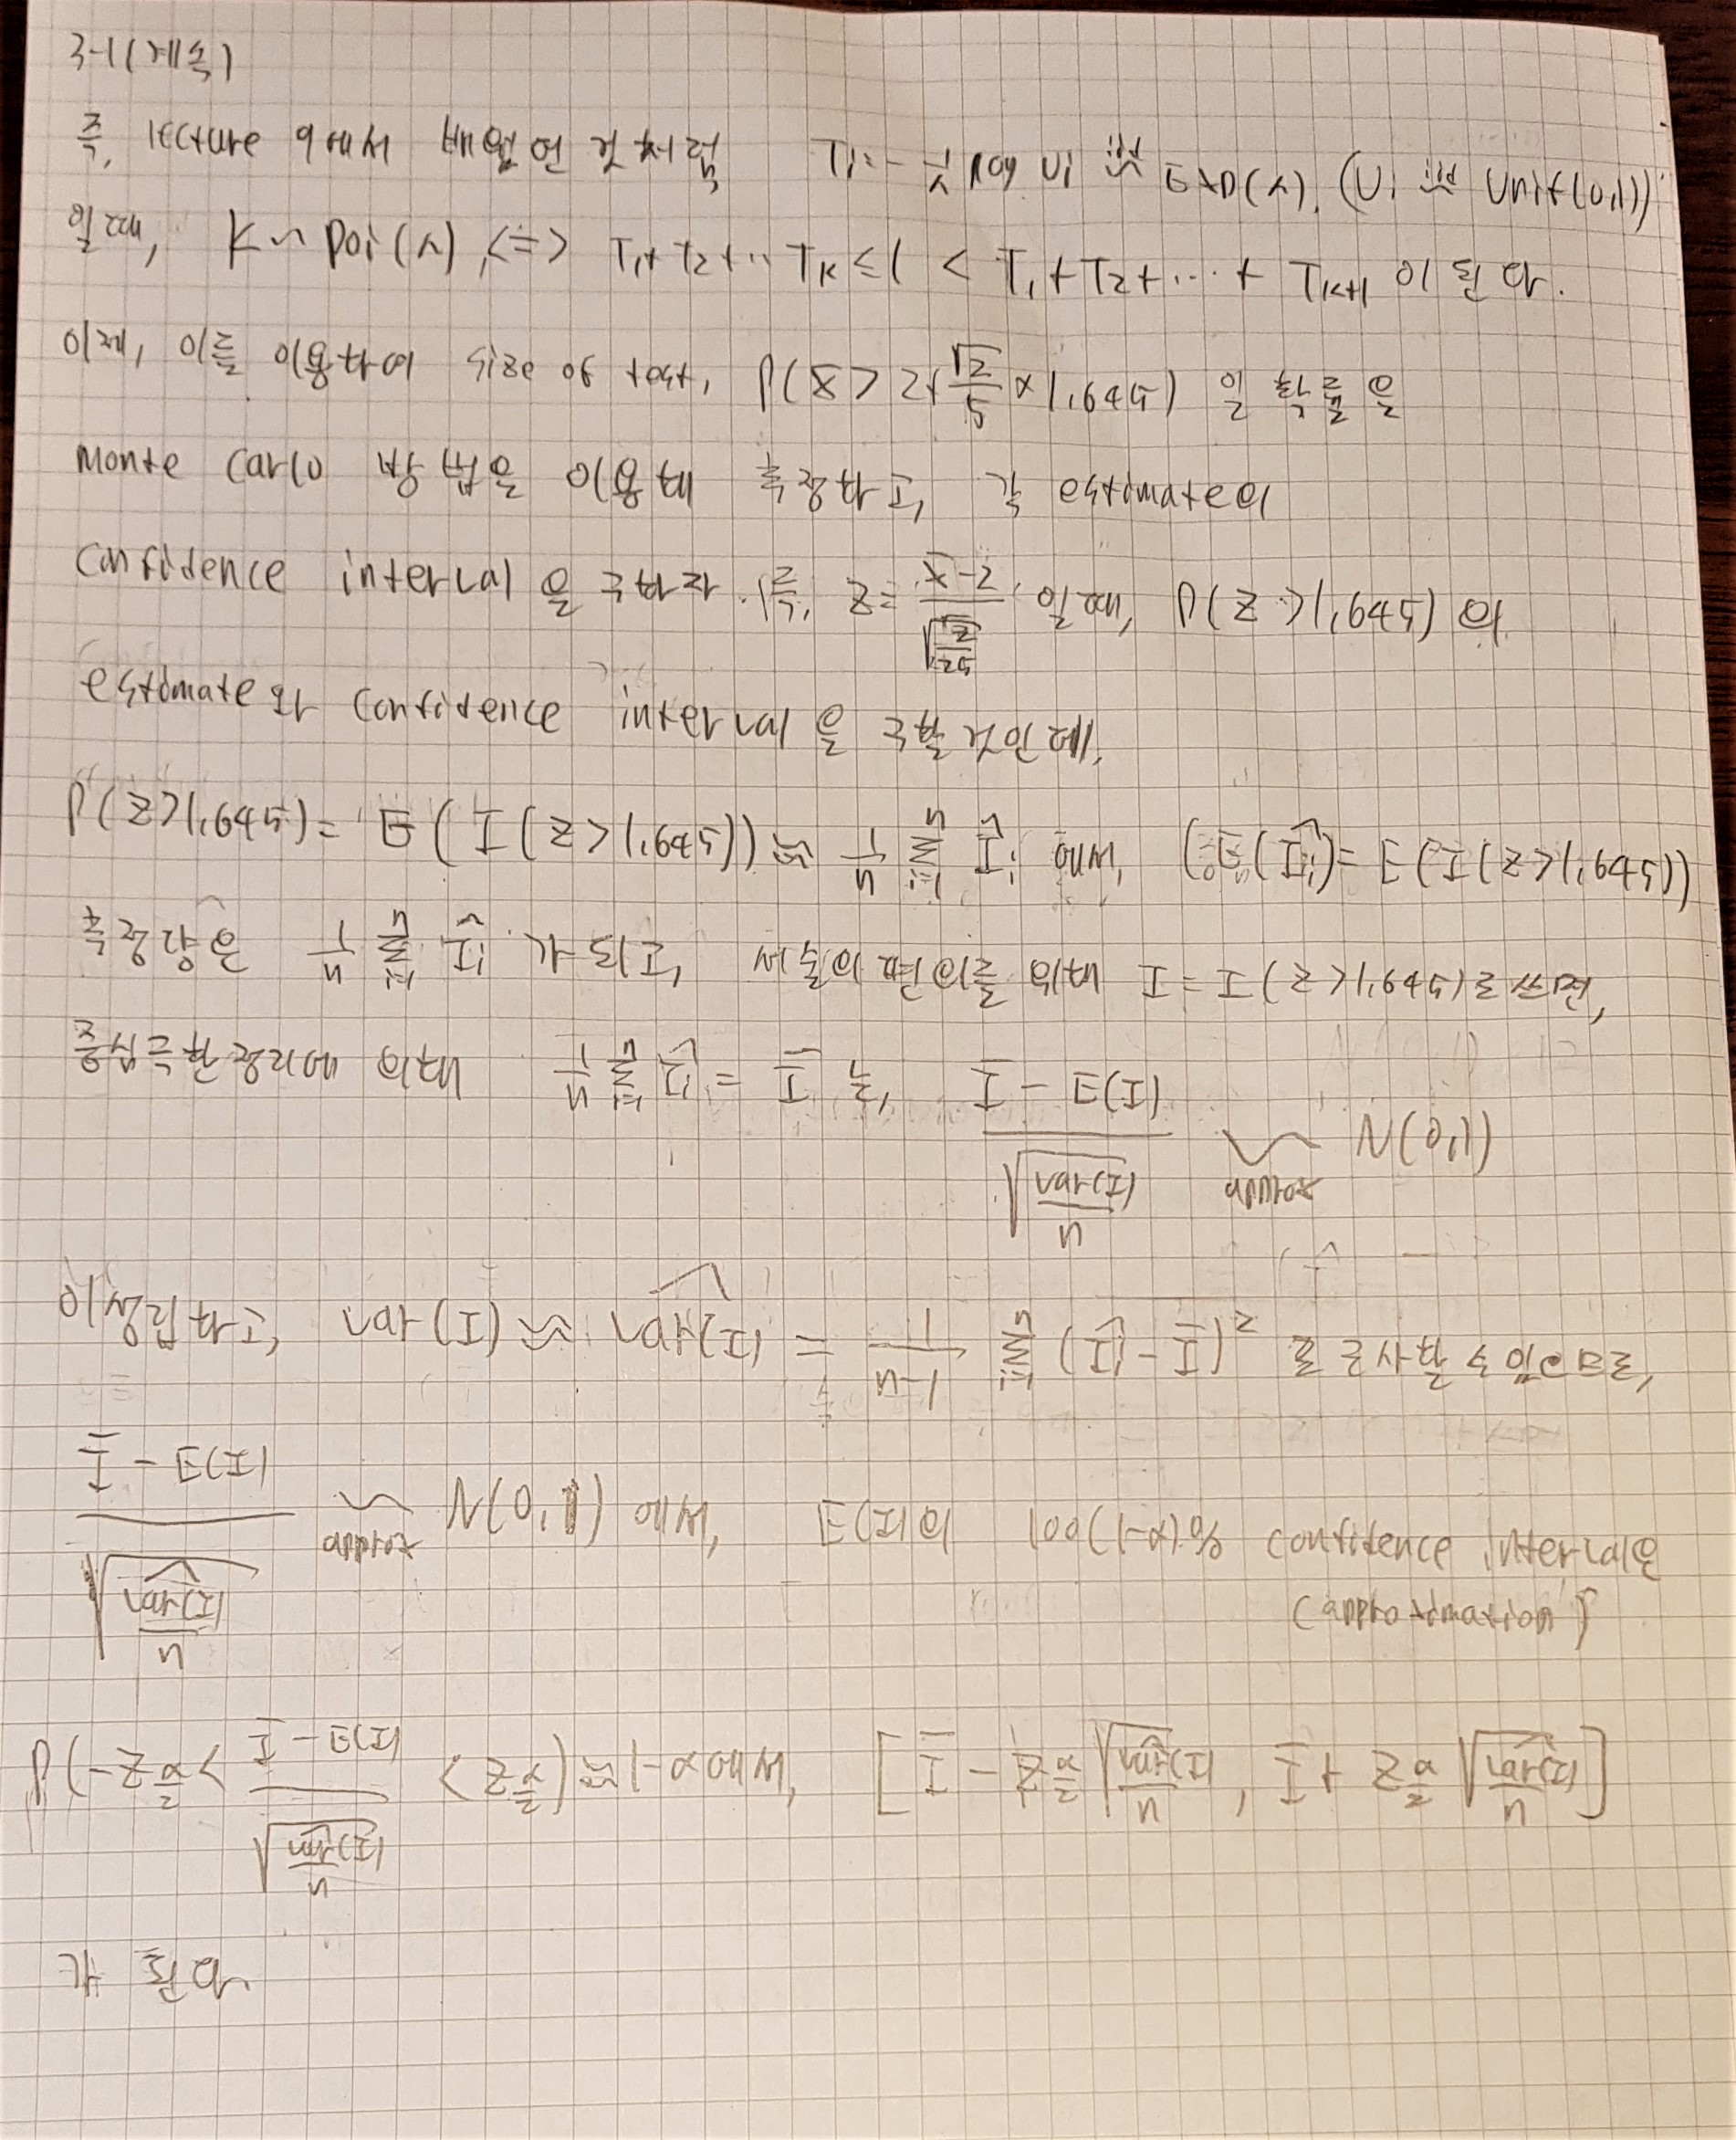 3-1 (계속)
즉, lecture 9에서 배웠던 것처럼 Ti = -1/λ log Ui iid~ Exp(λ). (Ui iid~ Unif(0,1))
일때, K ~ Poi(λ) <=> T1+T2+… TK ≤ 1 < T1+T2+…+ TK+1 이 된다.
이제, 이를 이용하여 size of test, P(X̄ > 2+ √2/5 × 1.645) 일 확률을
Monte Carlo 방법을 이용해 측정하고, 각 estimate의
confidence interval을 구하자. 즉, Z = (X̄-2)/√(2/25) 일때, P(Z > 1.645) 의
estimate와 confidence interval을 구할 것인데,
P(Z>1.645) = E(I(Z>1.645)) ≈ 1/n Σ_{i=1}^{n} Îi 에서, (E(Îi) = E(I(Z>1.645))
측정량은 1/n Σ_{i=1}^{n} Îi 가 되고, 서술의 편의를 위해 I = I(Z>1.645)로 쓰면,
중심극한정리에 의해 1/n Σ_{i=1}^{n} Îi = Ī 는, (Ī - E(I))/√(var(I)/n) ~ approx N(0,1)
이 성립하고, var(I) ≈ var̂(I) = 1/(n-1) Σ_{i=1}^{n} (Îi - Ī)² 로 근사할 수 있으므로,
(Ī - E(I))/√(var̂(I)/n) ~ approx N(0,1) 에서, E(I)의 100(1-α)% confidence interval은
(approximation)
P(-Z_{α/2} < (Ī - E(I))/√(var̂(I)/n) < Z_{α/2}) ≈ 1-α에서, [Ī - Z_{α/2} √(var̂(I)/n), Ī + Z_{α/2} √(var̂(I)/n)]
가 된다